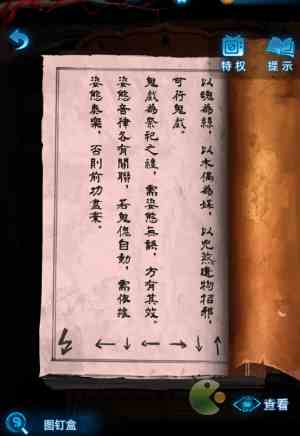 特权
提示
以魂為絲，以木偶為媒，以兇煞遺物招邪，
可行鬼戲。
鬼戲為祭祀之雜，需姿態無誤，方有其效。
姿態音律各有關聯，若鬼傀自動，需依據
姿態奏樂，否則前功盡棄。
← ↓ ← — → ↓ ↑
查看
图钉盒